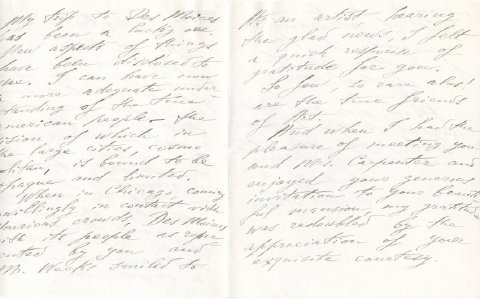 My trip to Des Moines
has been a lucky one.
New aspects of things
have been disclosed to
me. I can have now
a more adequate under-
standing of the true
American people — the
vision of which in
the large cities, cosmo
politan, is bound to be
vague and limited.
When in Chicago coming
unwillingly in contact with
crowds, Des Moines
with its people as repre
sented by you and
Mr. Weeks smiled to
As an artist hearing
the glad news, I felt
a quick response of
gratitude for you.
So few, so rare alas!
are the true friends
of Art.
And when I had the
pleasure of meeting you
and Mr. Carpenter and
enjoyed your generous
invitation to your beauti
ful mansion my gratitude
was redoubled by the
appreciation of your
exquisite courtesy.